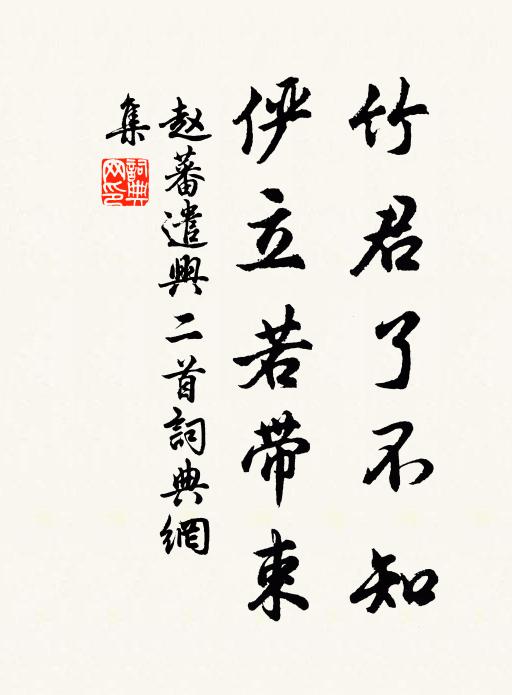 竹君了不知
俨立若带束
赵蕃遣興二首詞典網
集
詞典网印